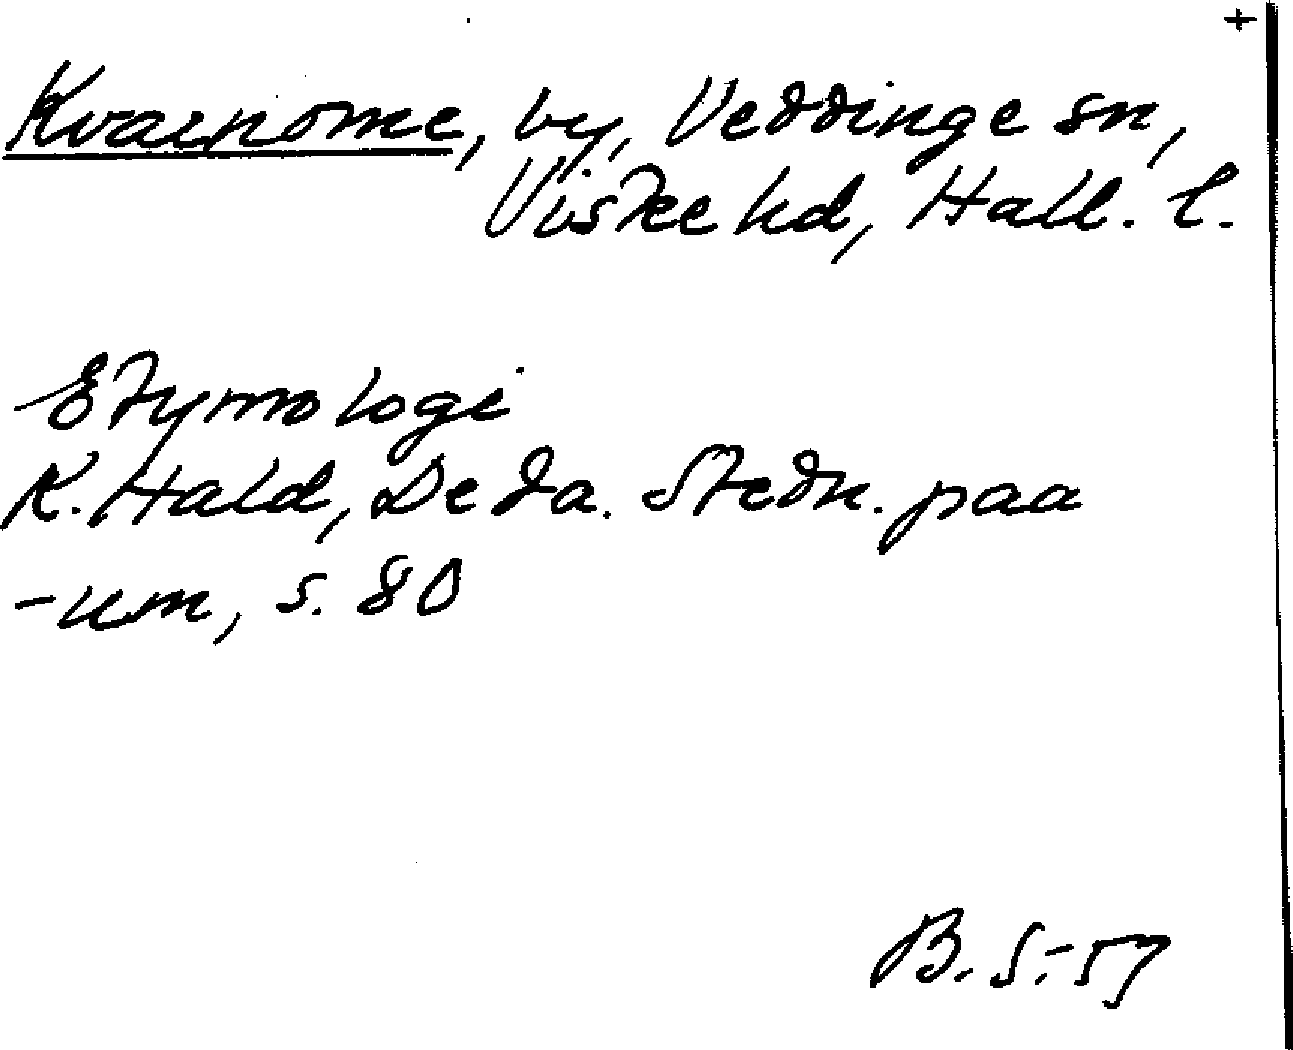 +
Kvarnome, by, Veddinge sn,
Viske hd, Hall. l.
Etymologi
K. Hald, De da. Stedn. paa
-um, s. 80
B. S. -57